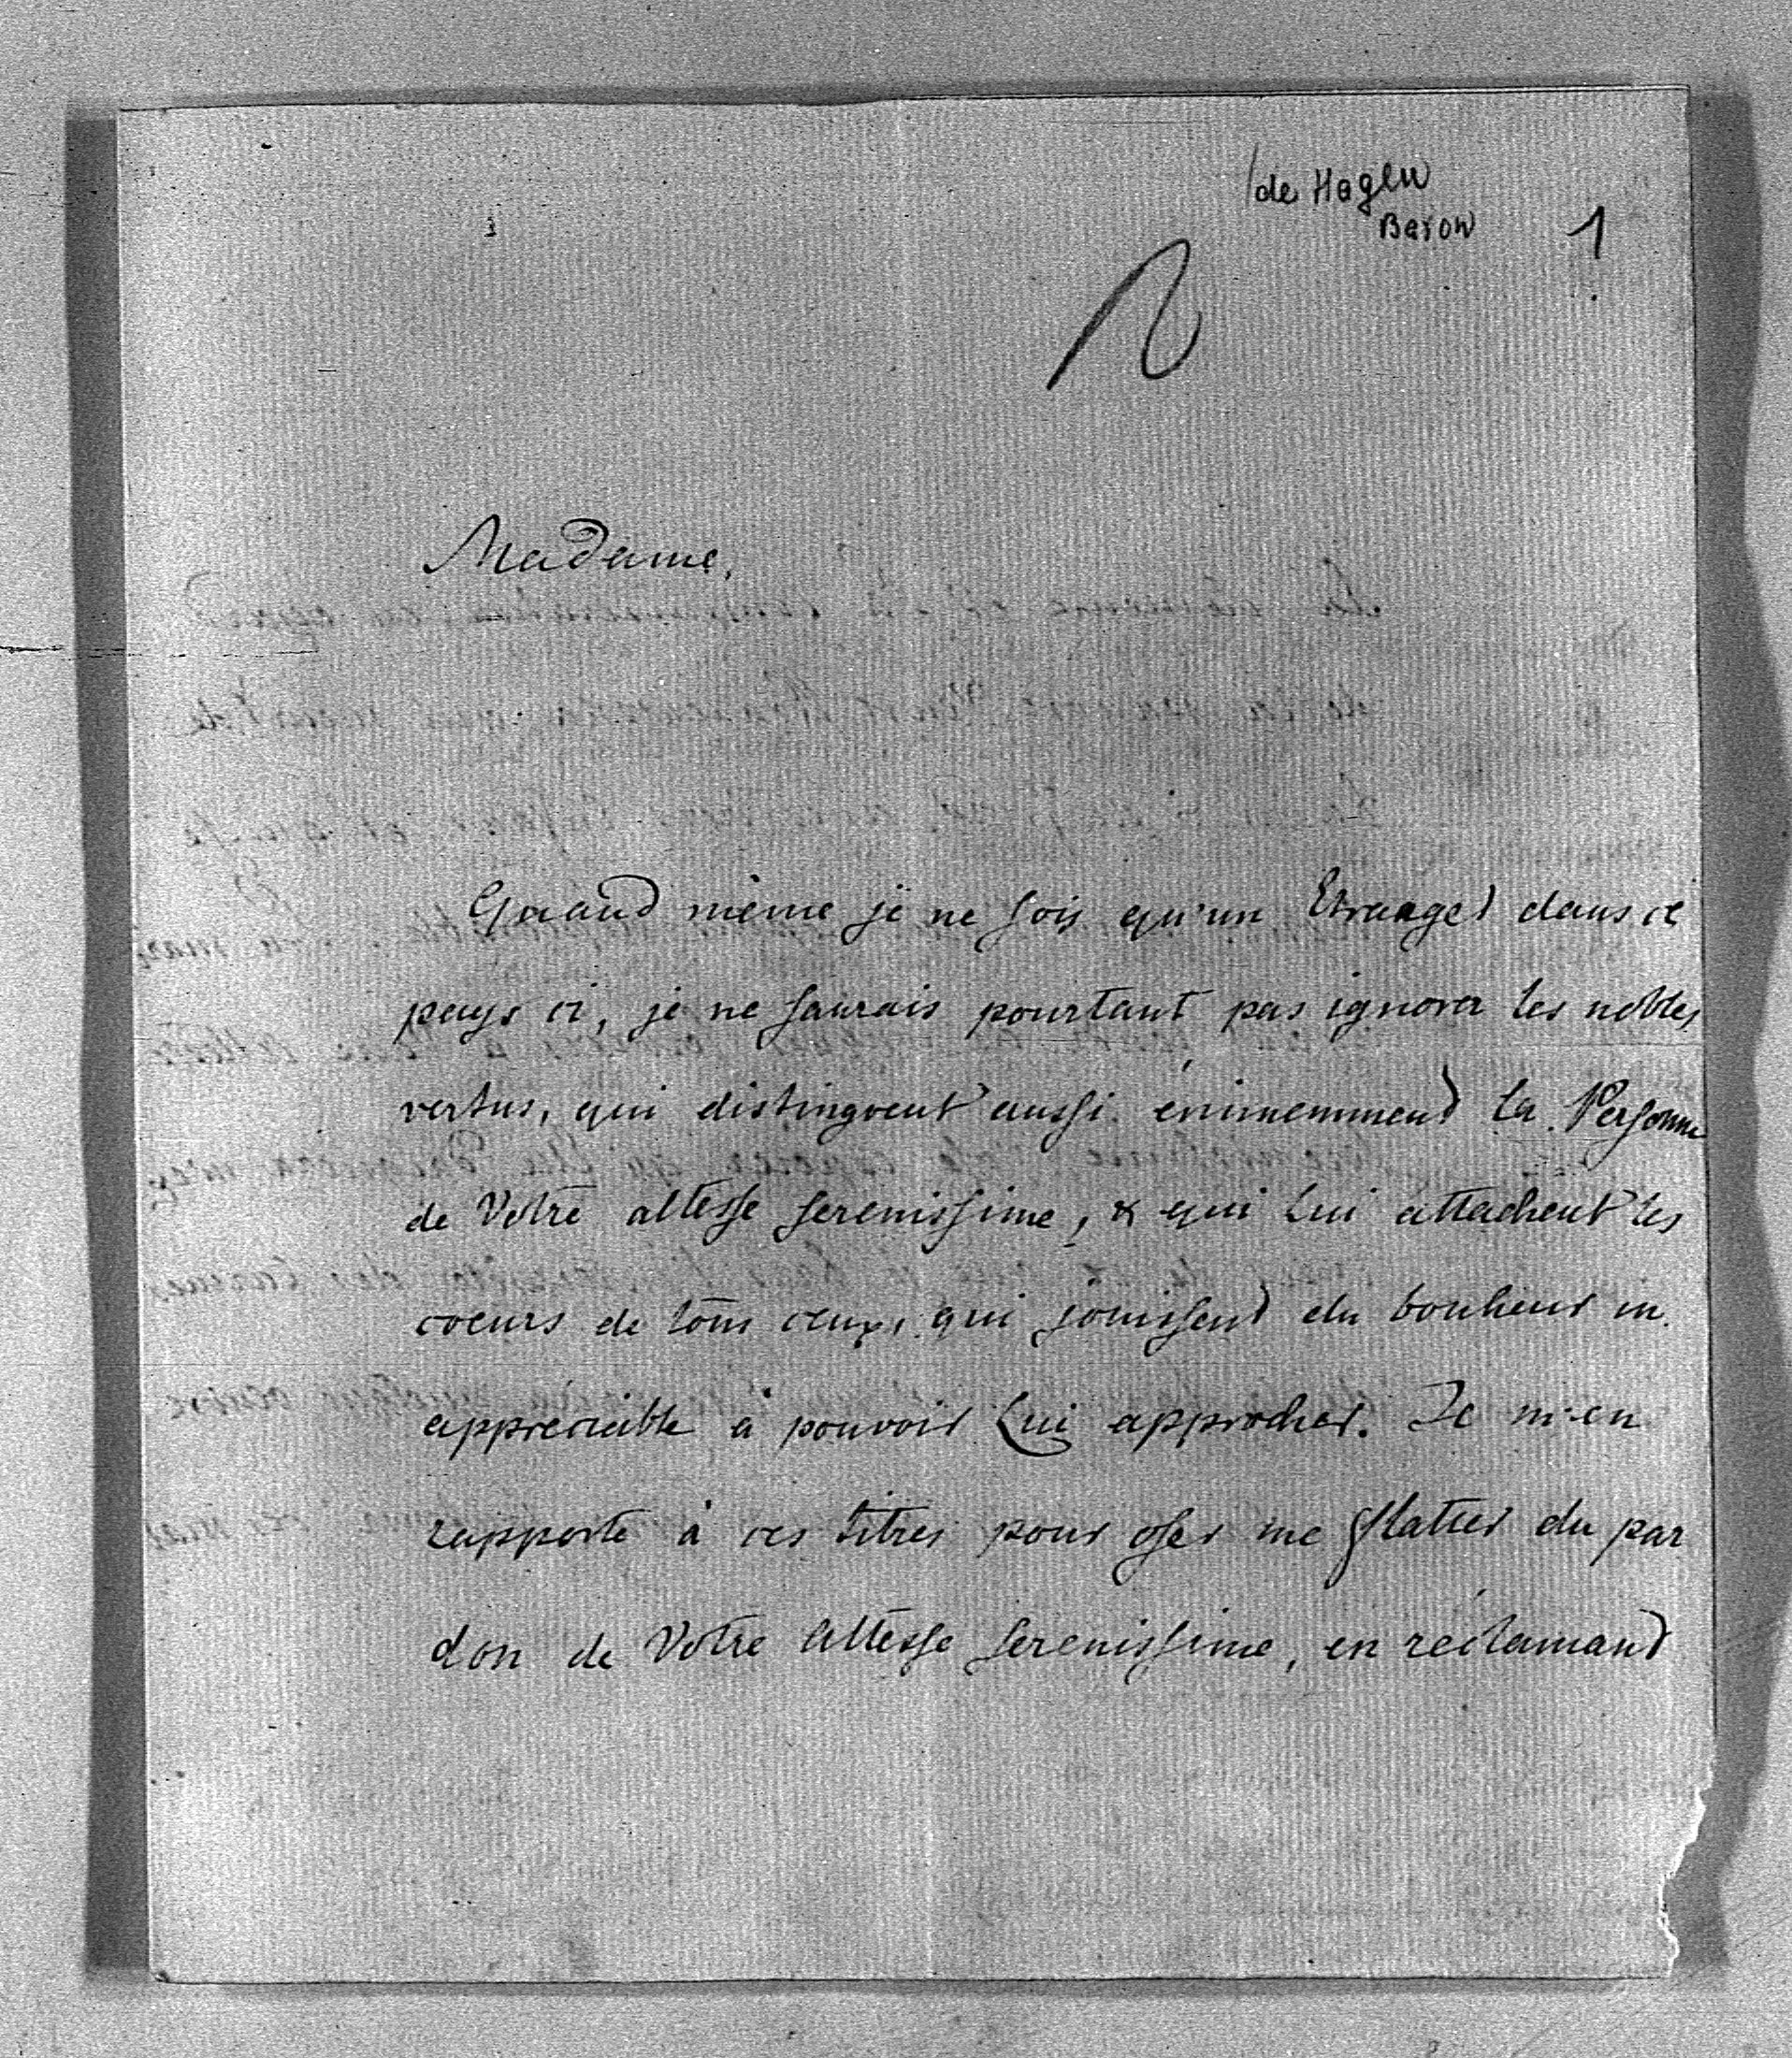 de Hagen
Baron
1
Madame,
Quand même je ne sois qu'un Etranger dans ce
pays ci, je ne saurais pourtant pas ignorer les nobles
vertus, qui distinguent aussi éminemment la Personne
de Votre altesse serenissime, & qui Lui attachent les
coeurs de tous ceux, qui jouissent du bonheur in
appreciable à pouvoir Lui approcher. Je m'en
rapporte à ces titres pour oser me flatter du par
don de Votre Altesse serenissime, en réclamant